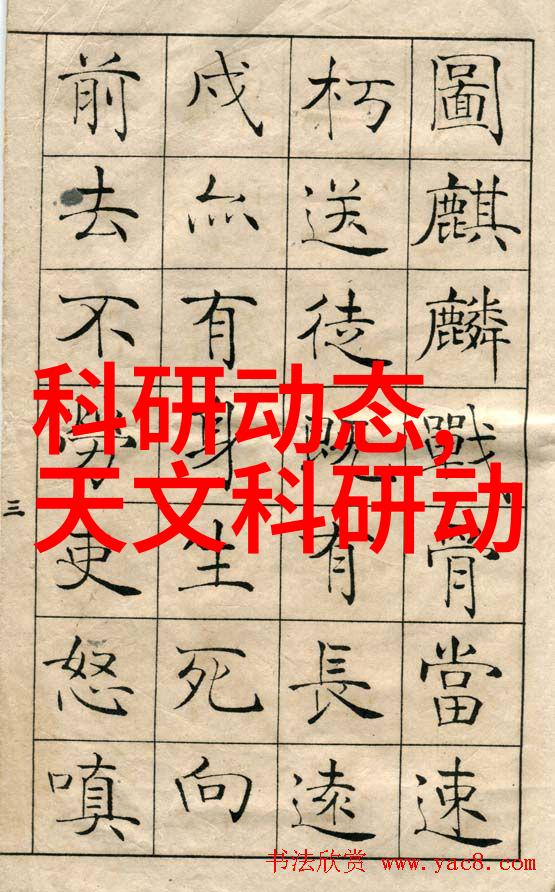 圖麒麟戰骨當速
朽送徒既有長遠
戍亦有身生死向
前去不勞吏怒嗔
三
科研动态,
天文科研动
书法欣赏 www.yac8.com